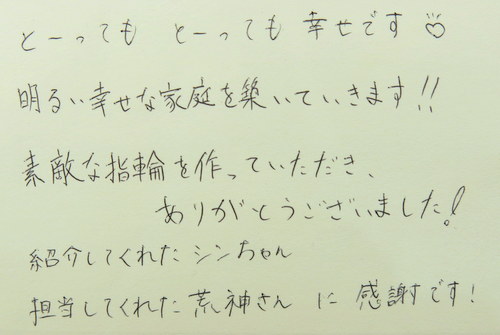 とーっても とーっても 幸せです♡
明るい幸せな家庭を築いていきます!!
素敵な指輪を作っていただき、
ありがとうございました!
紹介してくれた シンちゃん
担当してくれた 荒神さん に 感謝です!